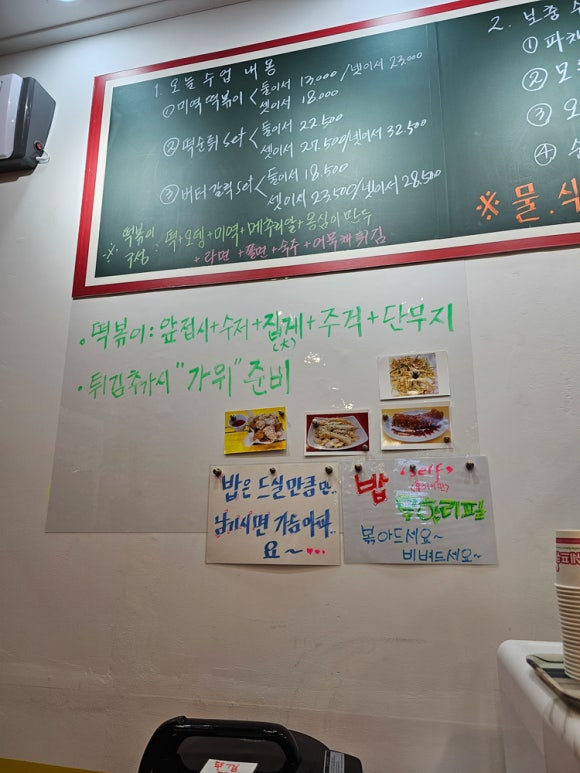 1. 오늘 수업 내용
① 미역 떡볶이 < 둘이서 13,000 / 넷이서 23,000
셋이서 18,000
② 떡순튀 set < 둘이서 22,500
셋이서 27,500 / 넷이서 32,500
③ 버터갈릭 set < 둘이서 18,500
셋이서 23,500 / 넷이서 28,500
※ 떡볶이 구성 : 떡+오뎅+미역+메추리알+옹심이만두
+라면+쫄면+숙주+어묵채튀김
2. 보충 수
① 파채
② 모
③ 오
④
※ 물.식
• 떡볶이: 앞접시+수저+집게+주걱+단무지
(大)
• 튀김추가시 "가위" 준비
밥은 드실만큼만..
남기시면 가슴아파..
요~
밥
self
무한리필
볶아드세요~
비벼드세요~